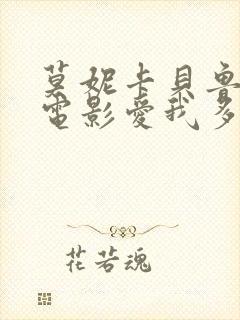 莫妮卡貝魯
電影愛我多
花若魂